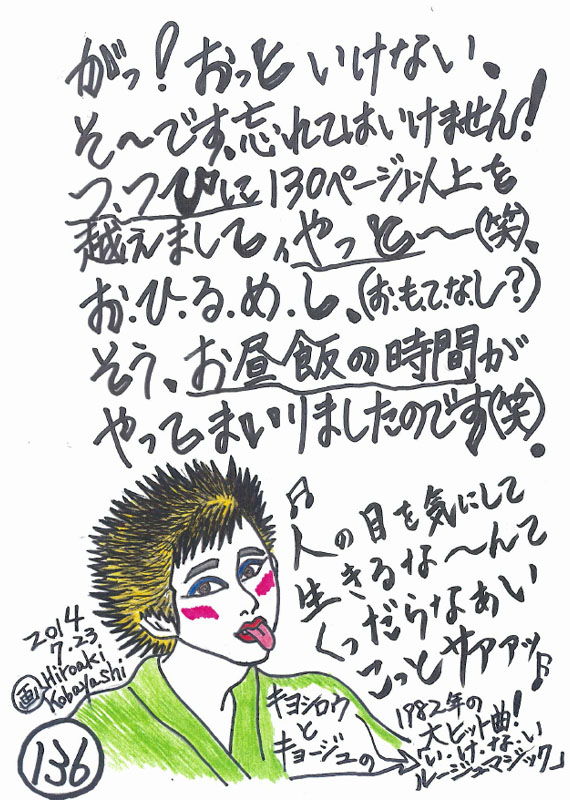 がっ!おっと いけない、
そ〜です、忘れてはいけません!
つ、つぴに130ページ以上を
越えまして、やっと〜(笑)、
お・ひ・る・め・し、(お・も・て・な・し?)
そう、お昼飯の時間が
やってまいりましたのです(笑)。
♫人の目を気にして
生きるな〜んて
くっだらなあい
こっとサァァッ♪
2014
7.23
画 Hiroaki
Kobayashi
キヨシロウ
と
キョージュの
1982年の
大ヒット曲!
「い・け・な・い
ルージュマジック」
136